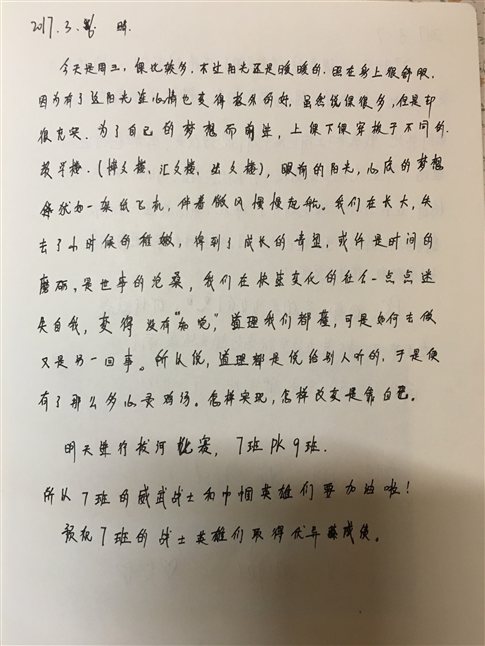 2017.3. 晴.
今天是周三,课比较多.不过阳光还是暖暖的.照在身上很舒服.
因为有了这阳光益心情也变得极为的好.虽然说课很多,但是却
很充实.为了自己的梦想而前进,上课下课穿梭于不同的.
教学楼.(博文楼、汇文楼、法文楼),眼前的阳光,心底的梦想
犹如一架纸飞机,伴着微风慢慢起航.我们在长大,失
去了小时候的稚嫩,得到了成长的希望,或许是时间的
磨砺、是世事的沧桑,我们在快速变化的社会一点点迷
失自我,变得没有"知觉",道理我们都懂,可是如何去做
又是另一回事。所以说,道理都是说给别人听的.于是便
有了那么多心灵鸡汤。怎样实现,怎样改变是靠自己.
明天进行拔河比赛,7班PK9班.
所以7班的威武战士和巾帼英雄们要加油啦!
预祝7班的战士英雄们取得优异成绩。